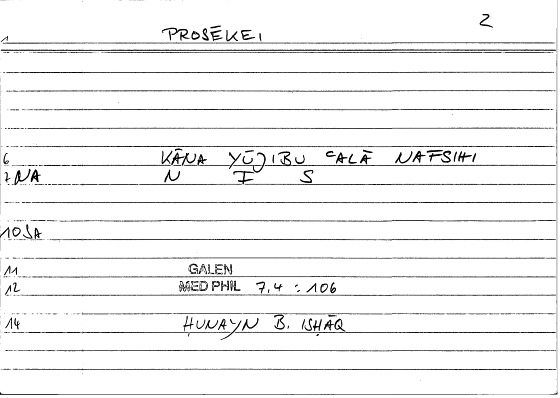 2
1 PROSĒKEI
6 KĀNA YŪJIBU ʿALĀ NAFSIHI
7 NA N I S
10 SA
11 GALEN
12 MED PHIL 7,4 : 106
14 ḤUNAYN B. ISḤĀQ